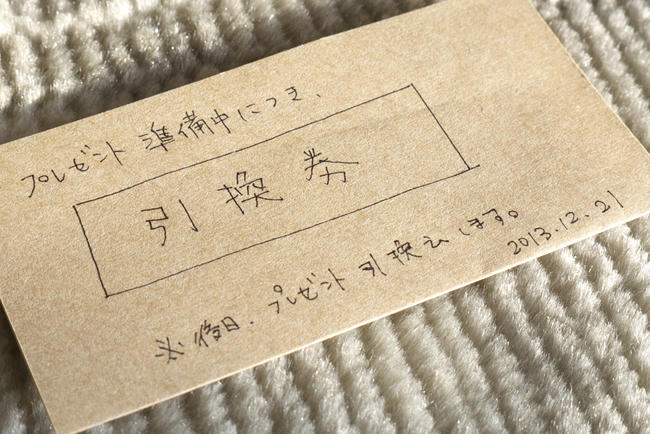 プレゼント準備中につき、
引換券
※後日、プレゼント引換えします。
2013.12.21